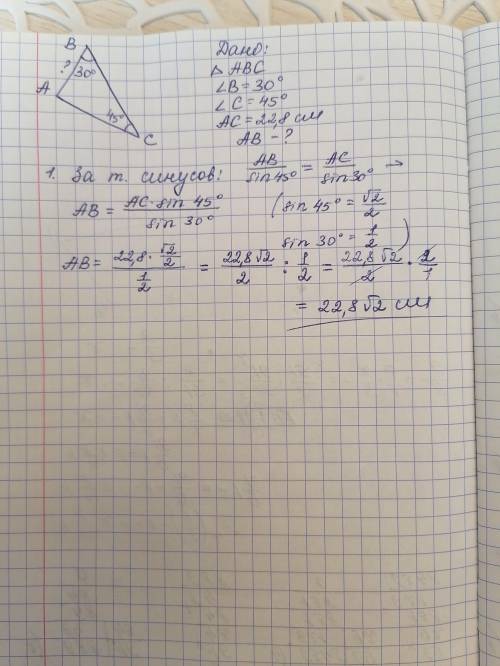 B
? 30°
A
45°
C
Дано:
△ ABC
∠B = 30°
∠C = 45°
AC = 22,8 см
AB - ?
1. За т. синусов: AB/sin45° = AC/sin30° →
AB = AC·sin 45°/sin 30° (sin 45° = √2/2
sin 30° = 1/2)
AB = (22,8 · √2/2)/(1/2) = 22,8√2/2 : 1/2 = 22,8√2/2 · 2/1
= 22,8√2 см